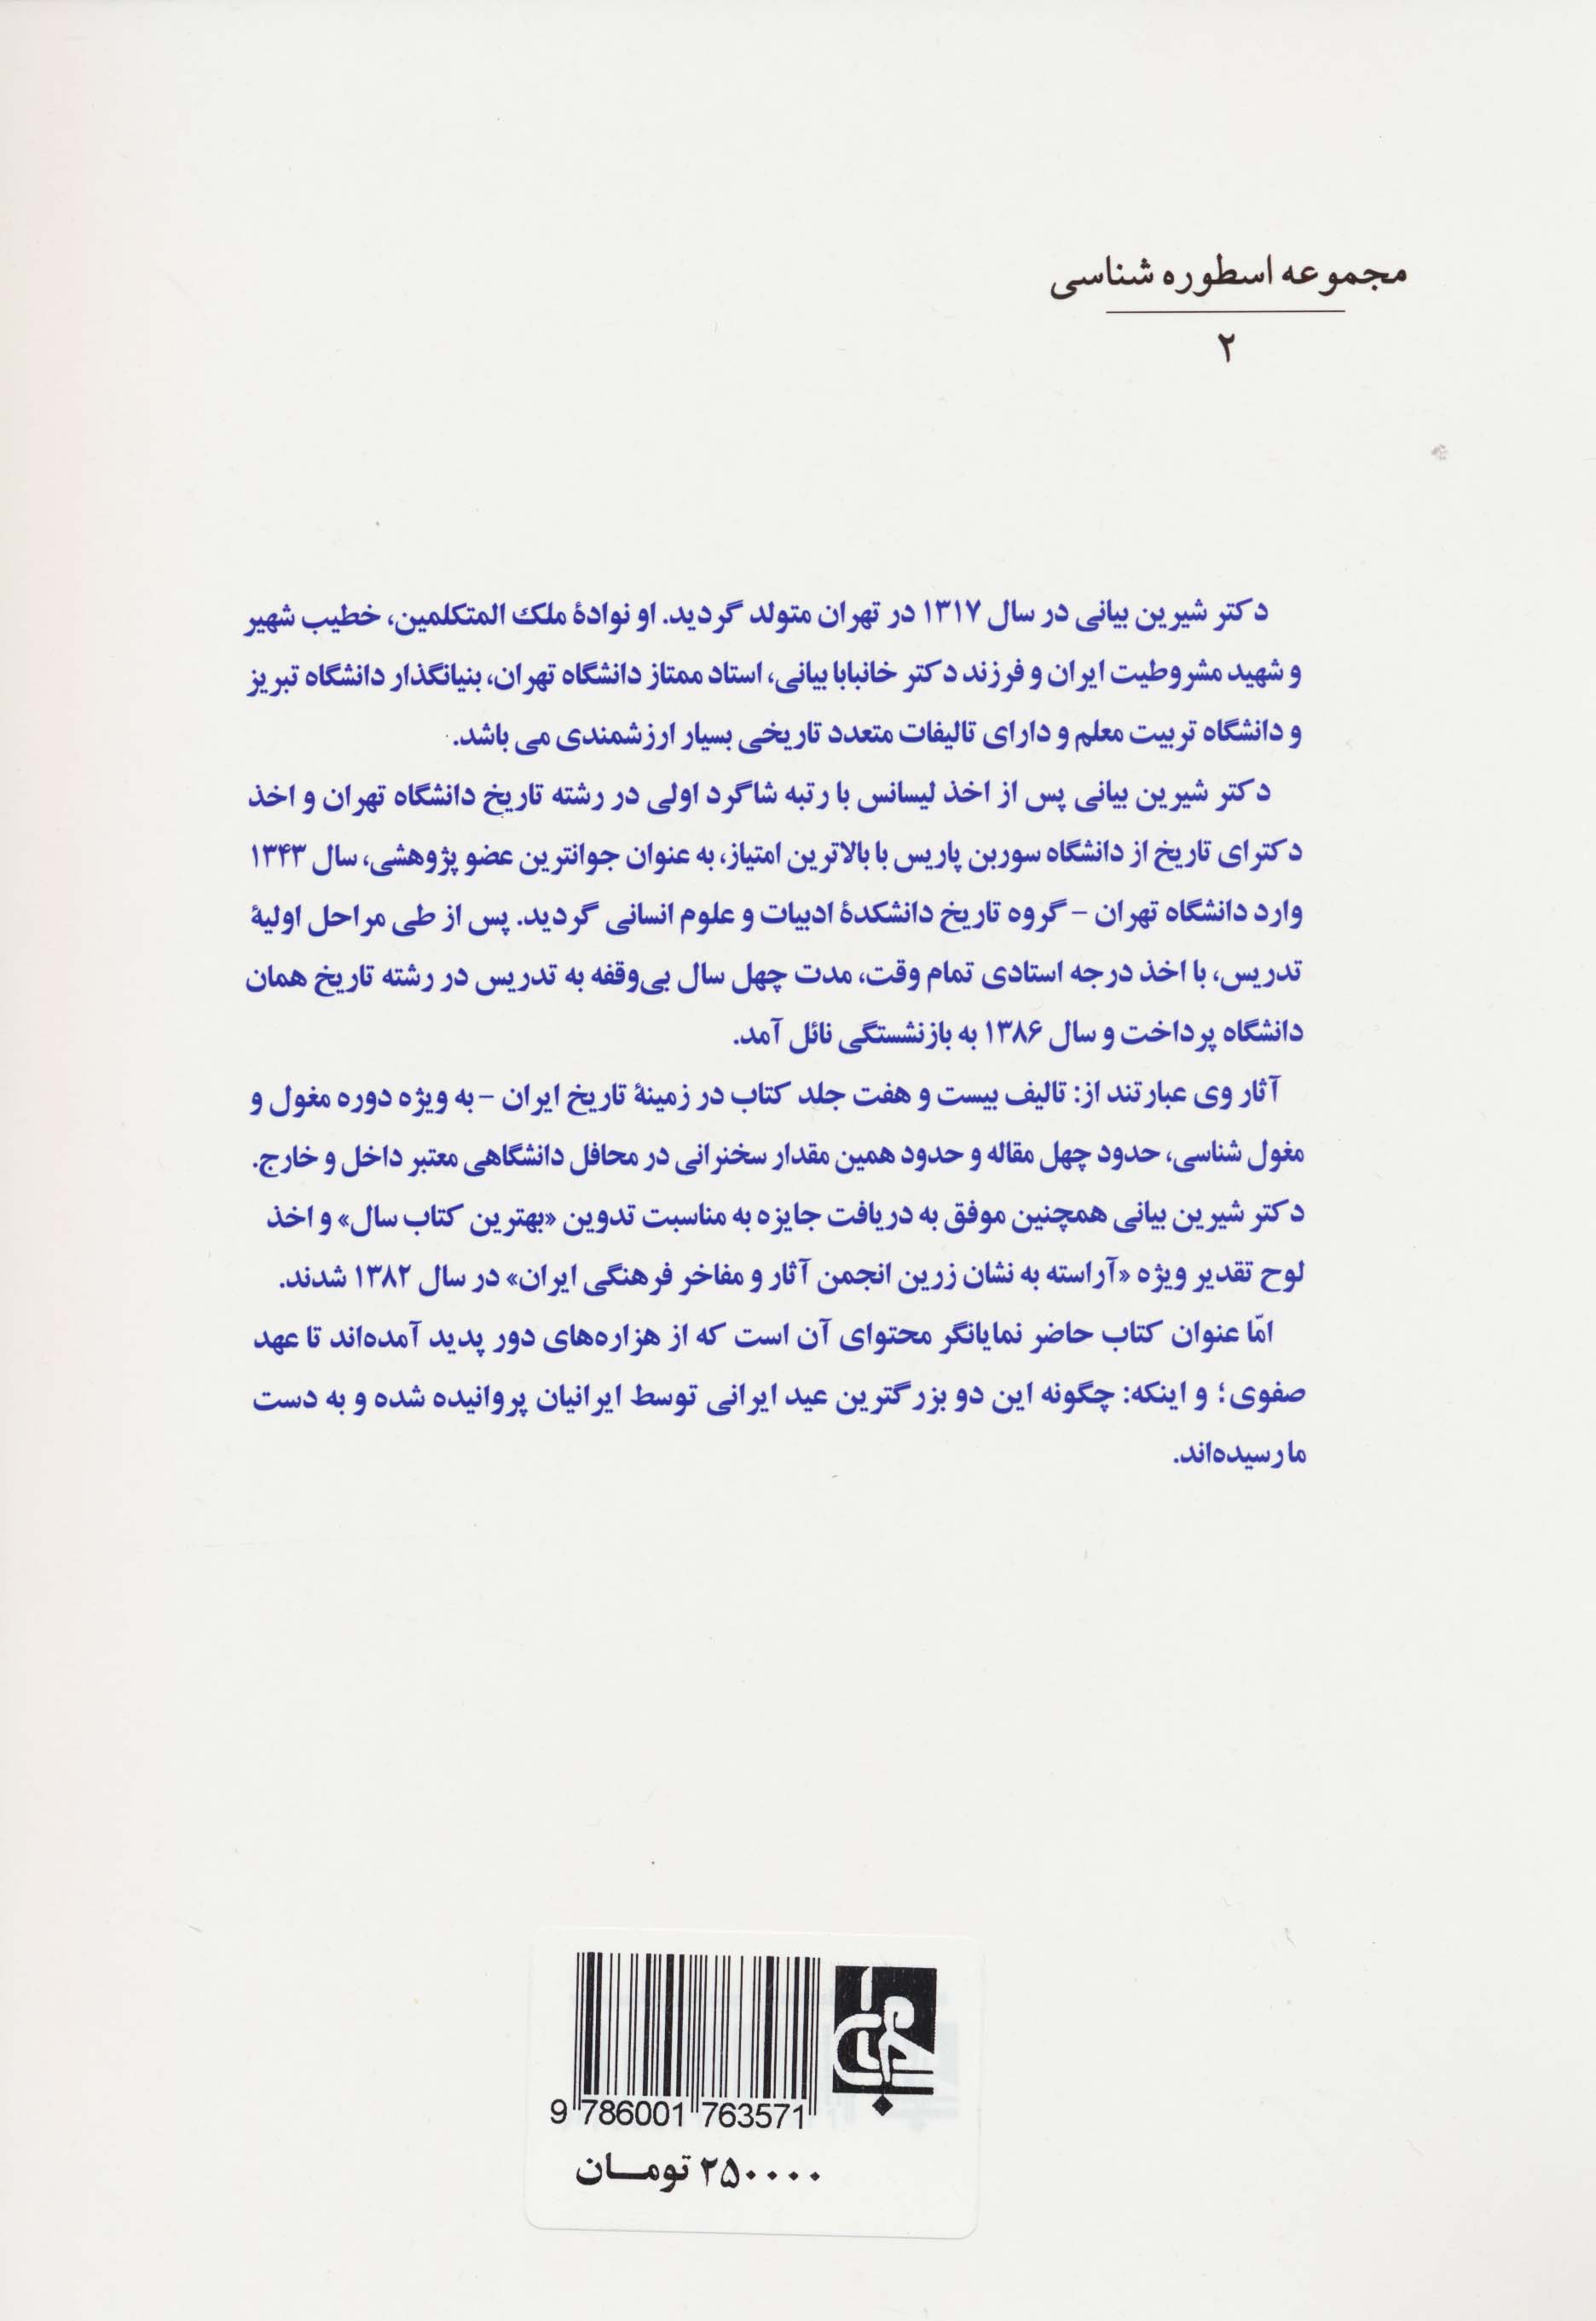 مجموعه اسطوره شناسی
۲
دکتر شیرین بیانی در سال ۱۳۱۷ در تهران متولد گردید. او نوادهٔ ملک المتکلمین، خطیب شهیر
و شهید مشروطیت ایران و فرزند دکتر خانبابا بیانی، استاد ممتاز دانشگاه تهران، بنیانگذار دانشگاه تبریز
و دانشگاه تربیت معلم و دارای تالیفات متعدد تاریخی بسیار ارزشمندی می باشد.
دکتر شیرین بیانی پس از اخذ لیسانس با رتبه شاگرد اولی در رشته تاریخ دانشگاه تهران و اخذ
دکترای تاریخ از دانشگاه سوربن پاریس با بالاترین امتیاز، به عنوان جوانترین عضو پژوهشی، سال ۱۳۴۳
وارد دانشگاه تهران - گروه تاریخ دانشکدهٔ ادبیات و علوم انسانی گردید. پس از طی مراحل اولیهٔ
تدریس، با اخذ درجه استادی تمام وقت، مدت چهل سال بی‌وقفه به تدریس در رشته تاریخ همان
دانشگاه پرداخت و سال ۱۳۸۶ به بازنشستگی نائل آمد.
آثار وی عبارتند از: تالیف بیست و هفت جلد کتاب در زمینهٔ تاریخ ایران - به ویژه دوره مغول و
مغول شناسی، حدود چهل مقاله و حدود همین مقدار سخنرانی در محافل دانشگاهی معتبر داخل و خارج.
دکتر شیرین بیانی همچنین موفق به دریافت جایزه به مناسبت تدوین «بهترین کتاب سال» و اخذ
لوح تقدیر ویژه «آراسته به نشان زرین انجمن آثار و مفاخر فرهنگی ایران» در سال ۱۳۸۲ شدند.
امّا عنوان کتاب حاضر نمایانگر محتوای آن است که از هزاره‌های دور پدید آمده‌اند تا عهد
صفوی؛ و اینکه: چگونه این دو بزرگترین عید ایرانی توسط ایرانیان پروانیده شده و به دست
ما رسیده‌اند.
9 786001 763571
۲۵۰۰۰۰ تومـــان